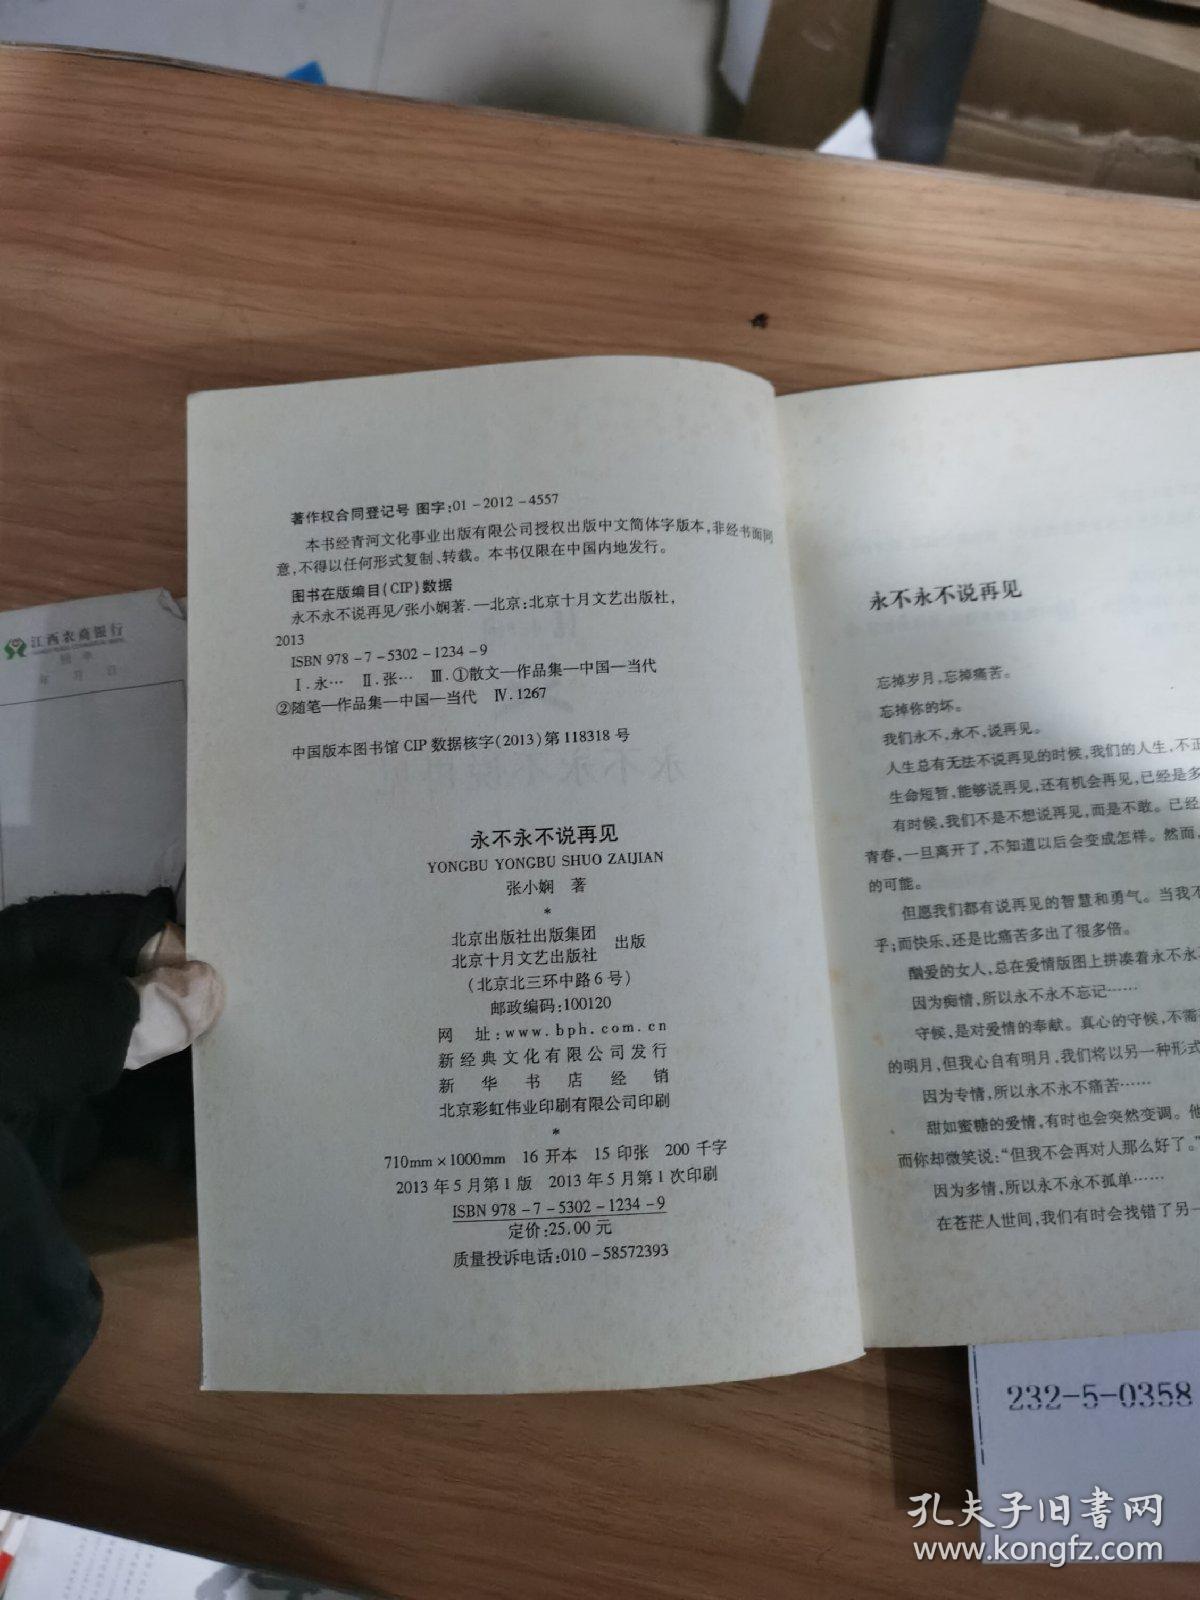 著作权合同登记号 图字:01-2012-4557
本书经青河文化事业出版有限公司授权出版中文简体字版本,非经书面同
意,不得以任何形式复制、转载。本书仅限在中国内地发行。
图书在版编目(CIP)数据
永不永不说再见/张小娴著.—北京:北京十月文艺出版社,
2013
ISBN 978-7-5302-1234-9
Ⅰ.永… Ⅱ.张… Ⅲ.①散文—作品集—中国—当代
②随笔—作品集—中国—当代 Ⅳ.1267
中国版本图书馆CIP数据核字(2013)第118318号
永不永不说再见
YONGBU YONGBU SHUO ZAIJIAN
张小娴 著
*
北京出版社出版集团
北京十月文艺出版社 出版
(北京北三环中路6号)
邮政编码:100120
网 址:www.bph.com.cn
新经典文化有限公司发行
新华书店经销
北京彩虹伟业印刷有限公司印刷
*
710mm×1000mm 16开本 15印张 200千字
2013年5月第1版 2013年5月第1次印刷
ISBN 978-7-5302-1234-9
定价:25.00元
质量投诉电话:010-58572393
永不永不说再见
忘掉岁月,忘掉痛苦。
忘掉你的坏。
我们永不,永不,说再见。
人生总有无法不说再见的时候,我们的人生,不正
生命短暂,能够说再见,还有机会再见,已经是多
有时候,我们不是不想说再见,而是不敢。已经
青春,一旦离开了,不知道以后会变成怎样。然而,
的可能。
但愿我们都有说再见的智慧和勇气。当我不
乎;而快乐,还是比痛苦多出了很多倍。
酷爱的女人,总在爱情版图上拼凑着永不永
因为痴情,所以永不永不忘记……
守候,是对爱情的奉献。真心的守候,不需
的明月,但我心自有明月,我们将以另一种形式
因为专情,所以永不永不痛苦……
甜如蜜糖的爱情,有时也会突然变调。他
而你却微笑说:“但我不会再对人那么好了。”
因为多情,所以永不永不孤单……
在苍茫人世间,我们有时会找错了另一
江西农商银行
年 月 日
232-5-0358
孔夫子旧书网
www.kongfz.com